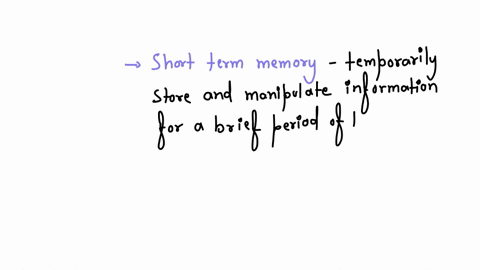 → Short term memory - temporarily
store and manipulate information
for a brief period of